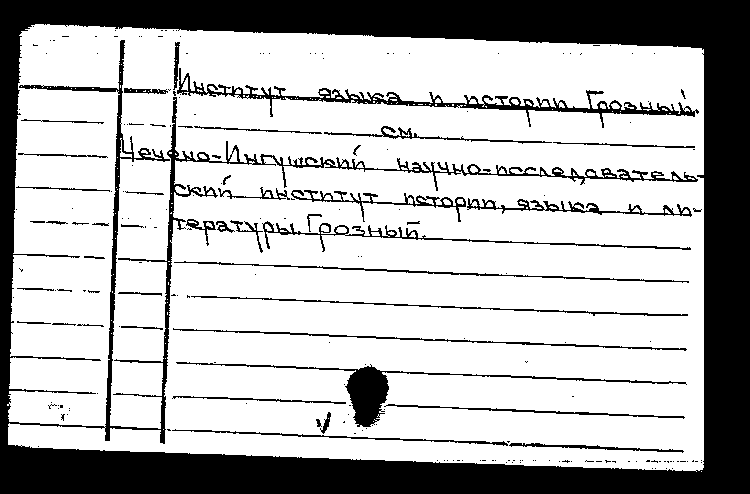 Институт языка и истории. Грозный.
см.
Чечено-Ингушский научно-исследователь-
ский институт истории, языка и ли-
тературы. Грозный.